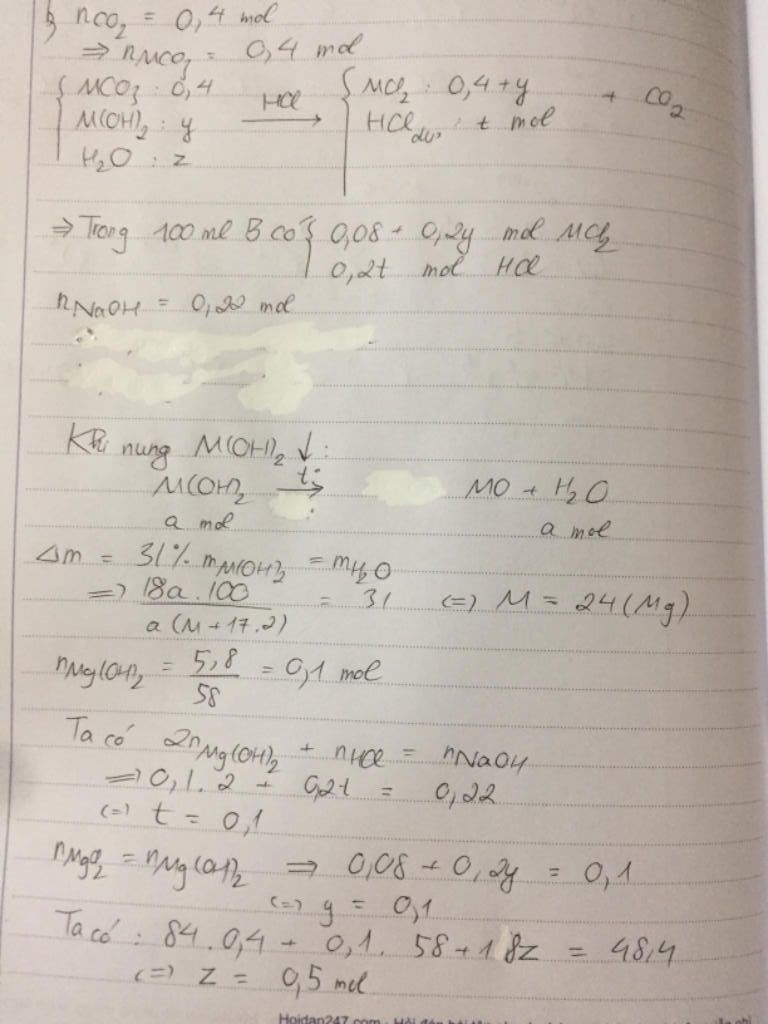 b, nCO2 = 0,4 mol
=> nMCO3 = 0,4 mol
{ MCO3 : 0,4
M(OH)2 : y
H2O : z
HCl →
{ MCl2 : 0,4 + y
HCl dư : t mol
+ CO2
=> Trong 100 ml B có { 0,08 + 0,2y mol MCl2
0,2t mol HCl
nNaOH = 0,22 mol
Khi nung M(OH)2 ↓ :
M(OH)2 t° → MO + H2O
a mol a mol
Δm = 31% mM(OH)2 = mH2O
=> 18a.100 / a(M + 17.2) = 31 (=) M = 24 (Mg)
nMg(OH)2 = 5,8 / 58 = 0,1 mol
Ta có 2nMg(OH)2 + nHCl = nNaOH
=> 0,1.2 + 0,2t = 0,22
(=) t = 0,1
nMgCl2 = nMg(OH)2 => 0,08 + 0,2y = 0,1
(=) y = 0,1
Ta có : 84.0,4 + 0,1.58 + 18z = 48,4
(=) z = 0,5 mol
Hoidan247.com - Hỏi đáp bài tập